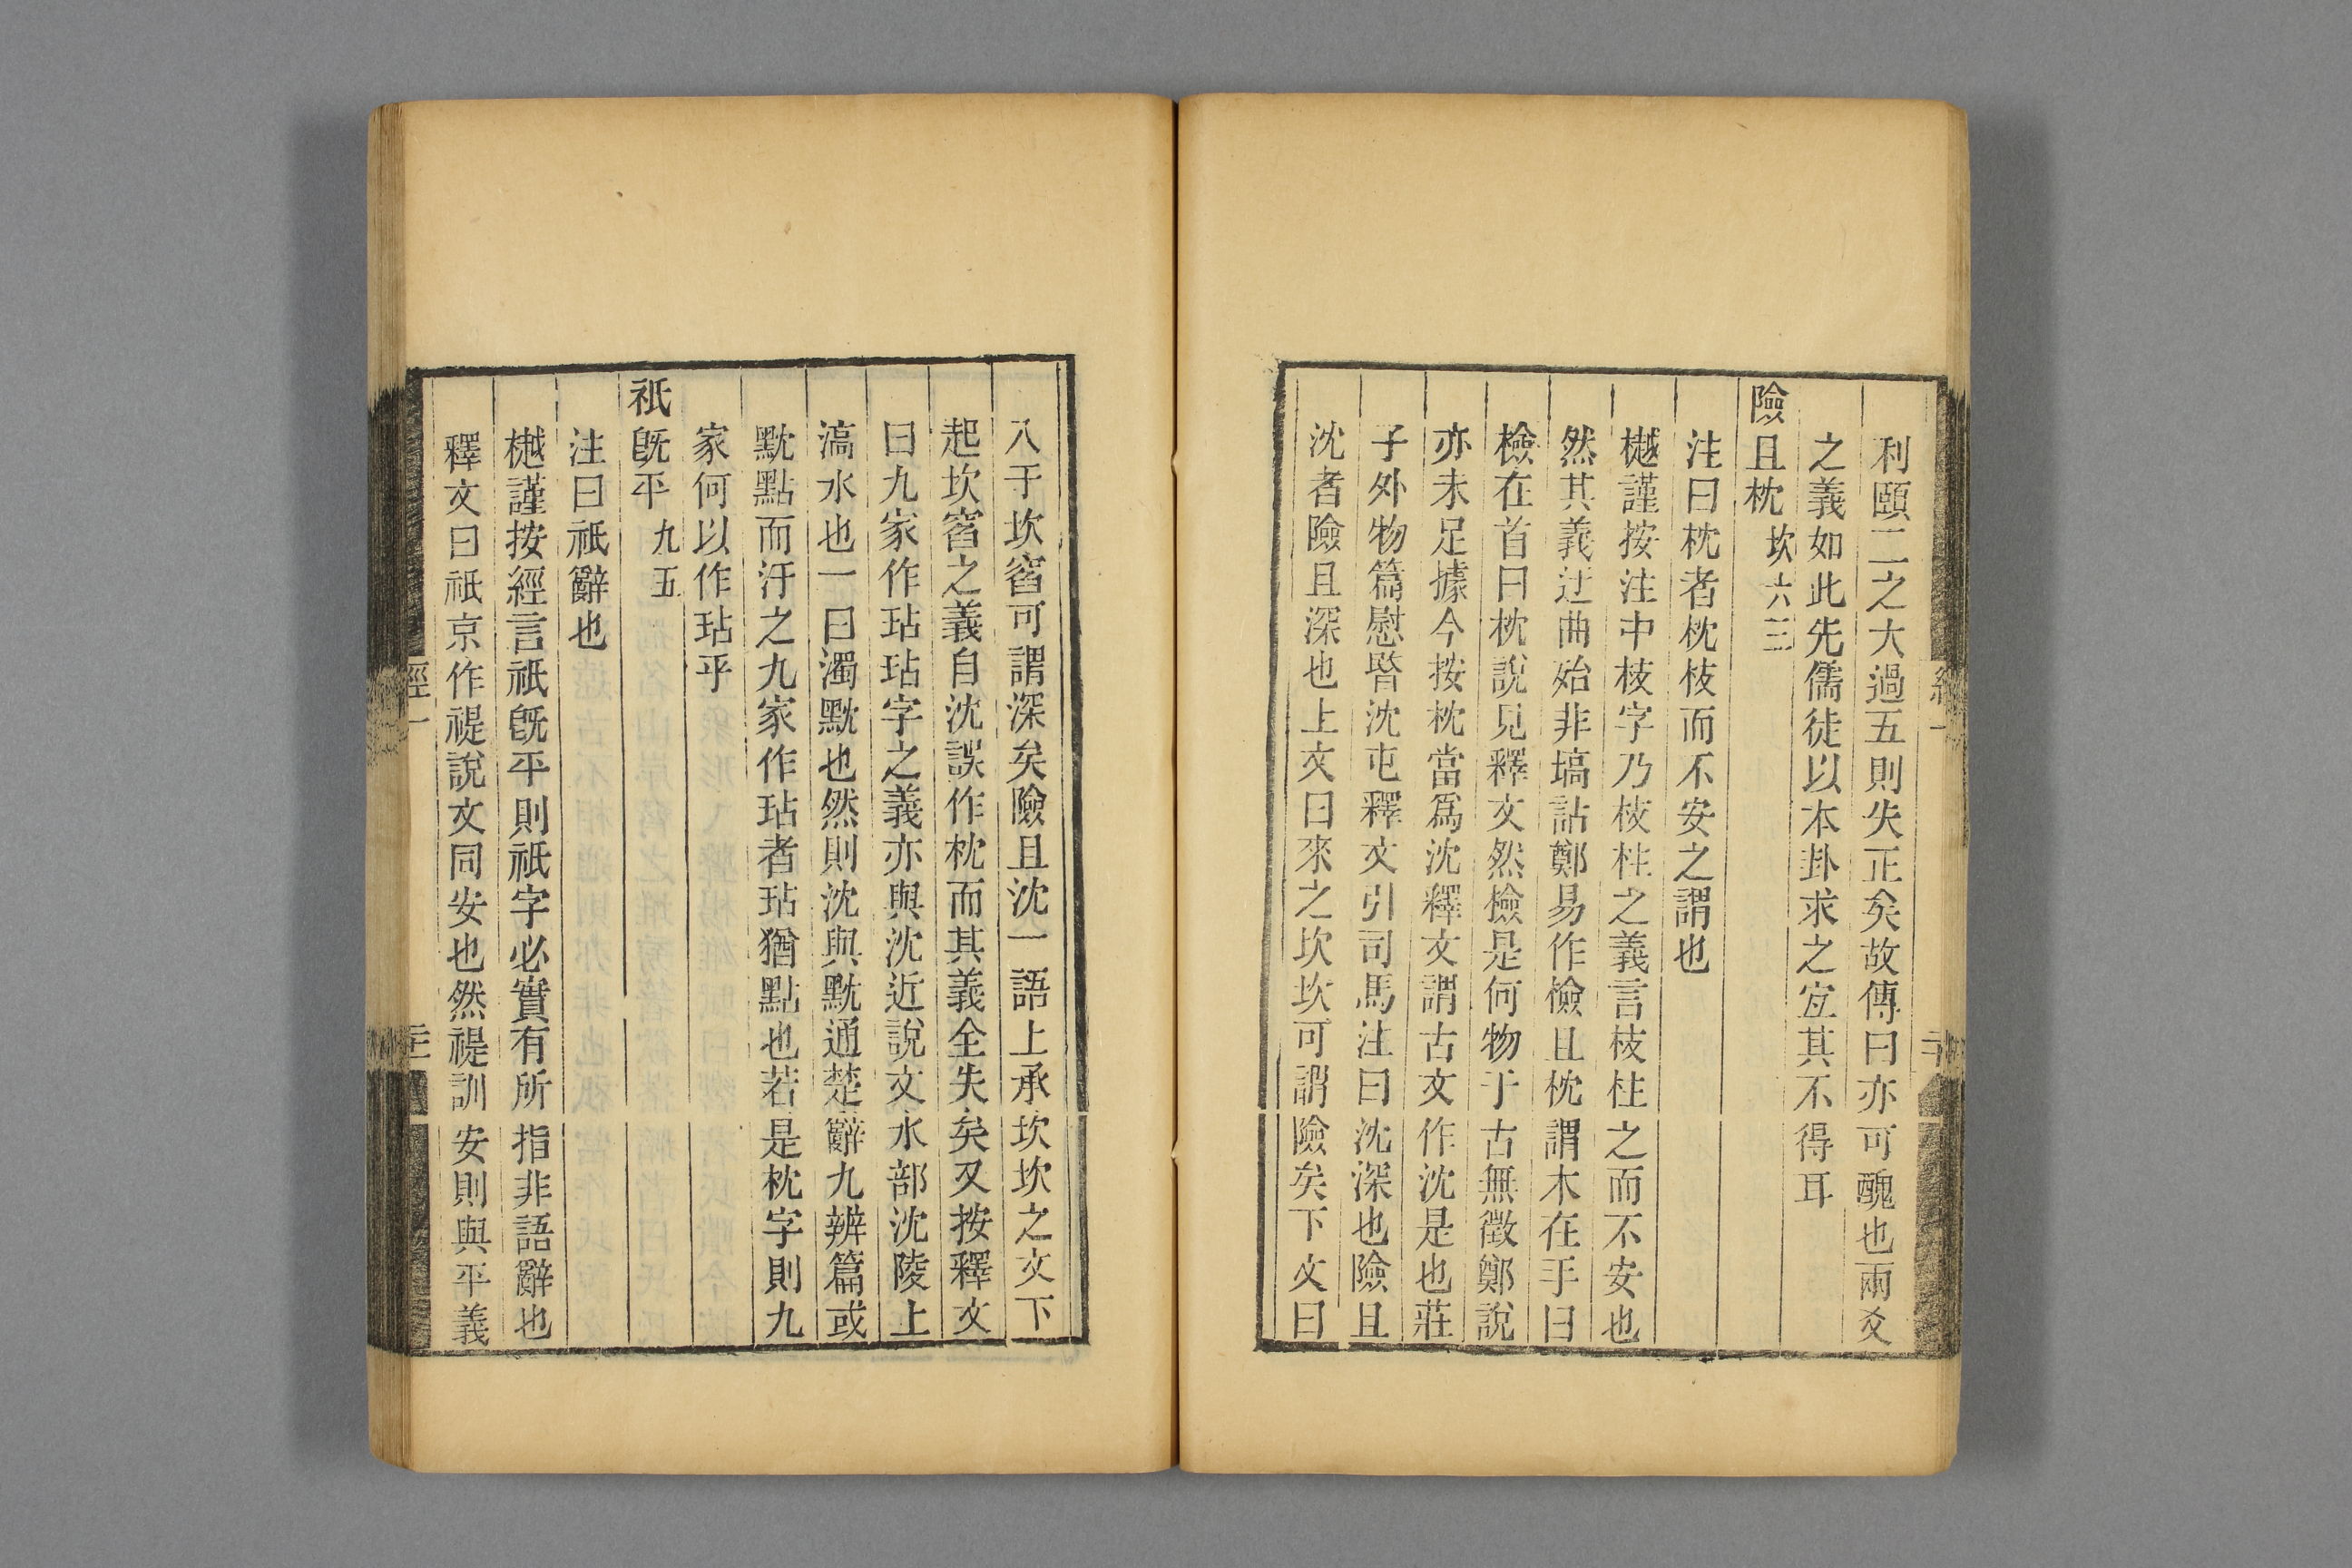 利頤二之大過五則失正矣故傳曰亦可醜也兩爻
之義如此先儒徒以本卦求之宜其不得耳
險且枕 坎六三
注曰枕者枕枝而不安之謂也
樾謹按注中枝字乃枝柱之義言枝柱之而不安也
然其義迂曲始非塙詁鄭易作檢且枕謂木在手曰
檢在首曰枕說見釋文然檢是何物于古無徵鄭說
亦未足據今按枕當爲沈釋文謂古文作沈是也莊
子外物篇慰暋沈屯釋文引司馬注曰沈深也險且
沈者險且深也上文曰來之坎坎可謂險矣下文曰
入于坎窞可謂深矣險且沈一語上承坎坎之文下
起坎窞之義自沈誤作枕而其義全失矣又按釋文
曰九家作玷玷字之義亦與沈近說文水部沈陵上
滈水也一曰濁黕也然則沈與黕通楚辭九辨篇或
黕點而汙之九家作玷者玷猶點也若是枕字則九
家何以作玷乎
祇旣平 九五
注曰祇辭也
樾謹按經言祇旣平則祇字必實有所指非語辭也
釋文曰祇京作禔說文同安也然禔訓安則與平義
經一